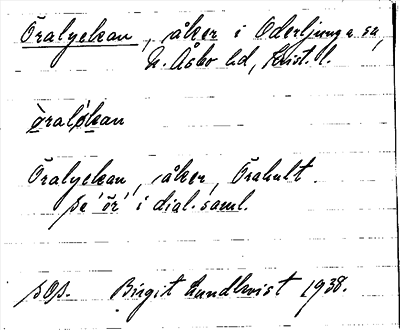 Öralyckan, åker i Oderljunga sn,
N. Åsbo hd, Krist. l.
öralókan
Öralyckan, åker, Örahult.
se 'ör' i dial. saml.
sOp. Birgit Lundkvist 1938.